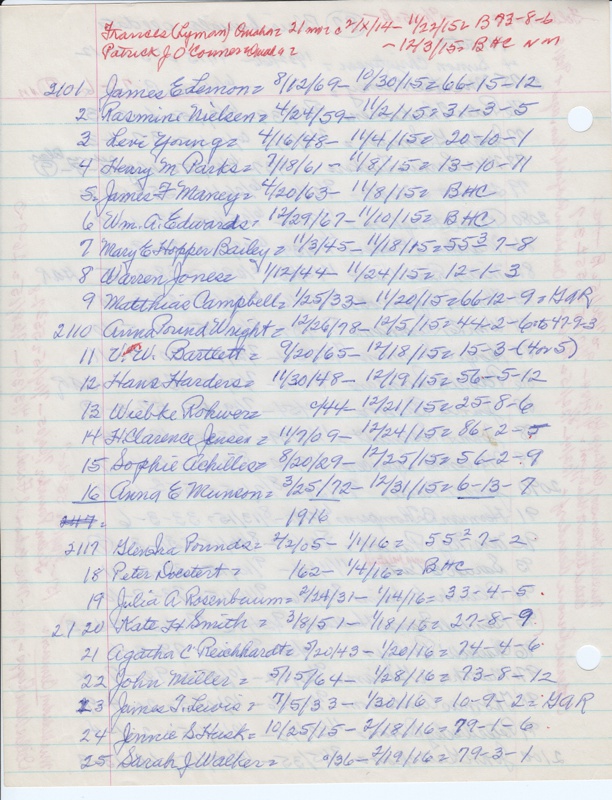 Francis (Lyman) Omaha = 21 mos c 2/X/14 - 11/22/15 = B 93-8-6
Patrick J O'Conner = Omaha = - 12/3/15 = BHC NM
2101 James E Lemon = 8/12/69 - 10/30/15 = 66-15-12
2 Rasmine Nielsen = 4/24/59 - 11/2/15 = 31-3-5
3 Levi Young = 4/16/48 - 11/4/15 = 20-10-1
4 Henry M Parks = 7/18/61 - 11/8/15 = 13-10-11
5 James F Maney = 4/20/63 - 11/8/15 = BHC
6 Wm. A. Edwards = 12/29/67 - 11/10/15 = BHC
7 Mary E Hopper Bailey = 11/3/45 - 11/18/15 = 55 3/ 7-8
8 Warren Jones = 1/12/44 - 11/24/15 = 12-1-3
9 Matthias Campbell = 1/25/33 - 11/20/15 = 66-12-9 = GAR
2110 Anna Pound Wright = 12/26/78 - 12/5/15 = 44-2-6 to 47-9-3
11 W. Bartlett = 9/20/65 - 12/18/15 = 15-3-(4 or 5)
12 Hans Harders = 11/30/48 - 12/19/15 = 56-5-12
13 Wiebke Rohwer = c/44 12/21/15 = 25-8-6
14 H. Clarence Jensen = 11/7/09 - 12/24/15 = 86-2-5
15 Sophie Achilles = 8/20/29 - 12/25/15 = 56-2-9
16 Anna E Muncon = 3/25/72 - 12/31/15 = 6-13-7
1916
2117 Glendra Pounds = 2/2/05 - 1/1/16 = 55 2/ 7-2
18 Peter Docstert = 162 - 1/4/16 = BHC
19 Julia A Rosenbaum = 2/24/31 - 1/14/16 = 33-4-5
2120 Kate H Smith = 3/8/51 - 1/18/16 = 27-8-9
21 Agatha C Reichhardt = 5/20/43 - 1/20/16 = 74-4-6
22 John Miller = 5/15/64 - 1/28/16 = 73-8-12
23 James T. Lewis = 7/5/33 - 1/30/16 = 10-9-2 = GAR
24 Jennie S. Husk = 10/25/15 - 2/18/16 = 79-1-6
25 Sarah J Walker = c/36 - 2/19/16 = 79-3-1